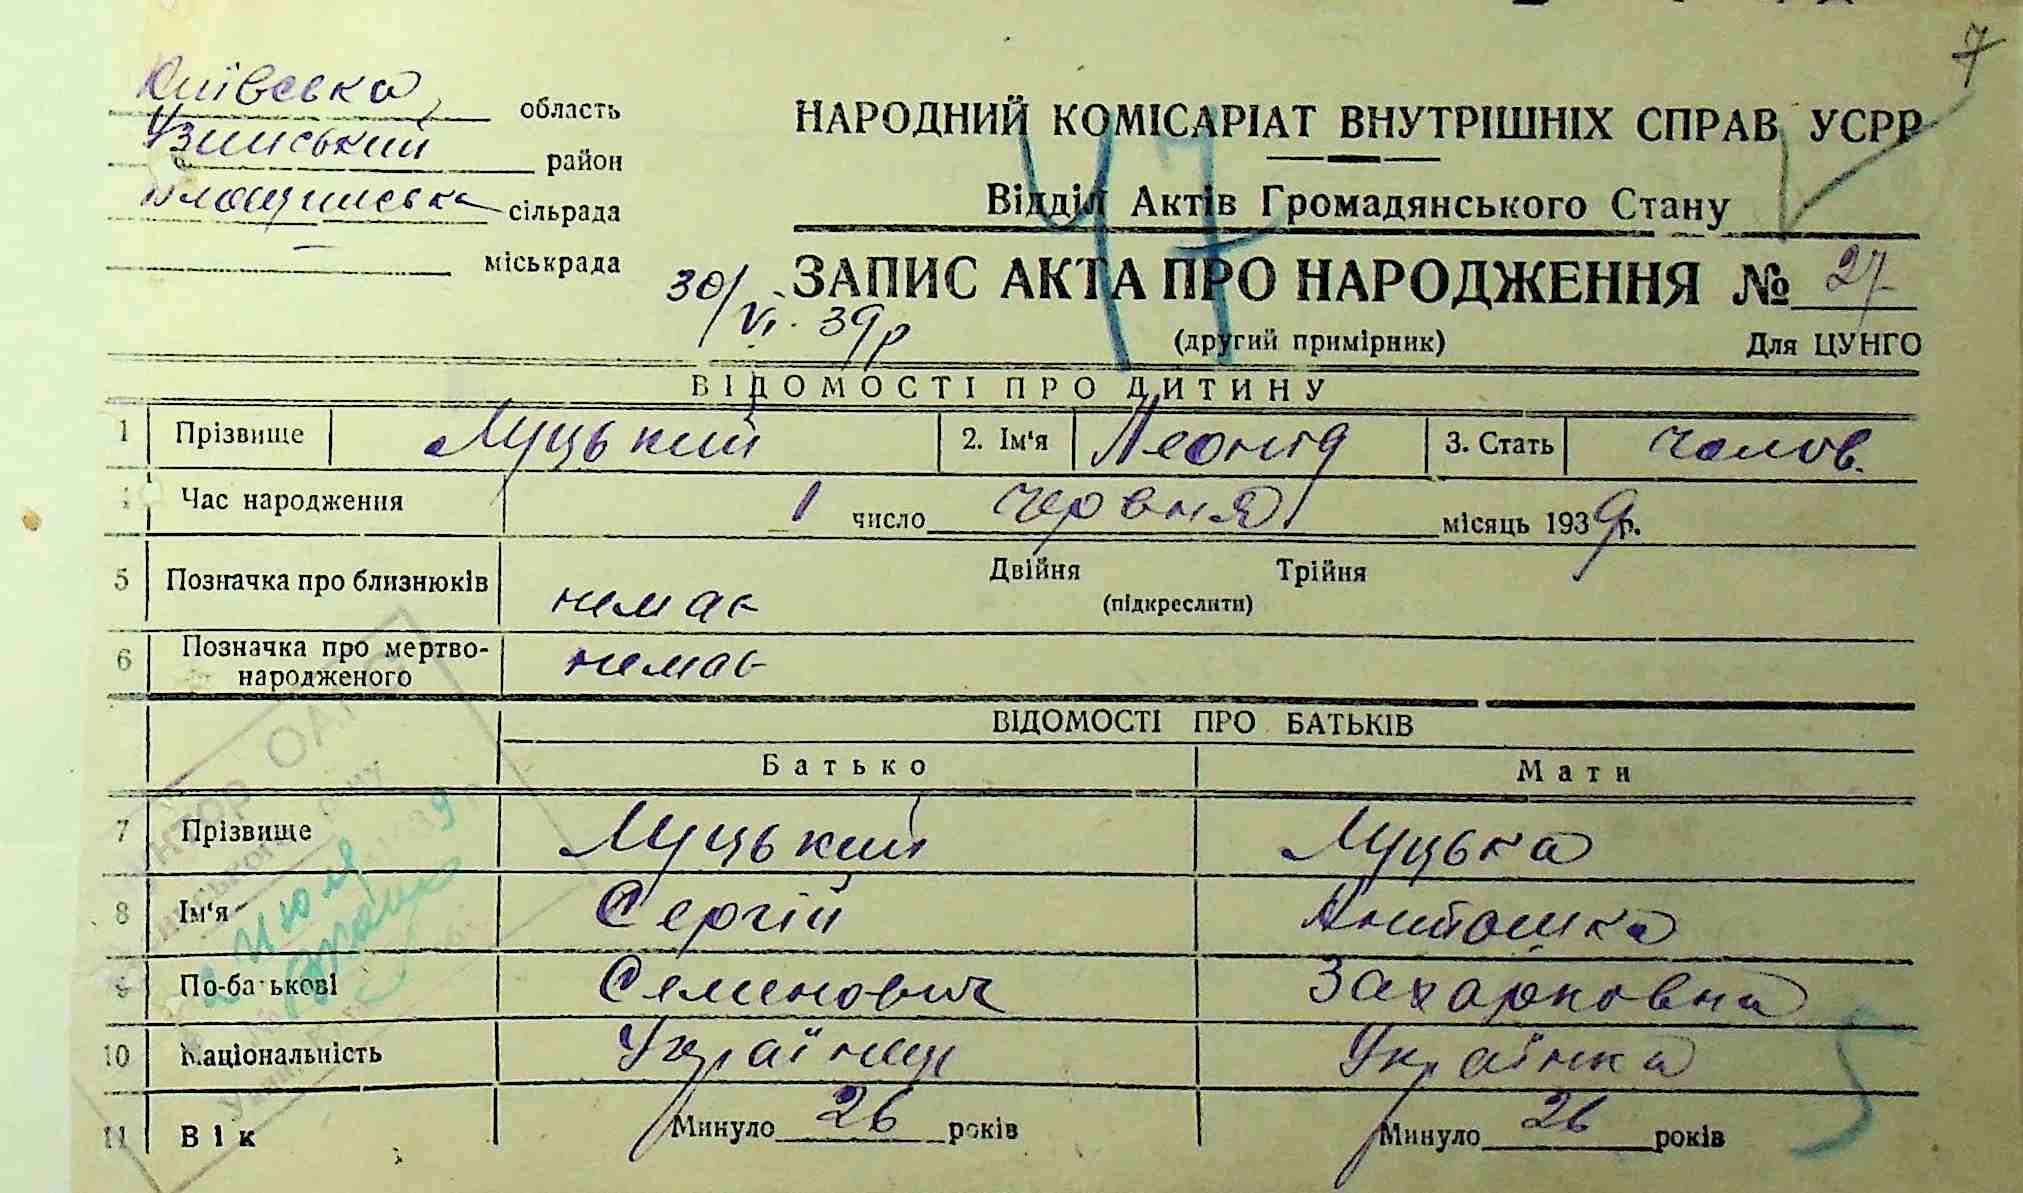 7
Київська область
Узинський район
сільрада
— міськрада
НАРОДНИЙ КОМІСАРІАТ ВНУТРІШНІХ СПРАВ УСРР
Відділ Актів Громадянського Стану
47
ЗАПИС АКТА ПРО НАРОДЖЕННЯ № 27
30/VI. 39р
(другий примірник) Для ЦУНГО
ВІДОМОСТІ ПРО ДИТИНУ
1 Прізвище Луцький 2. Ім'я Леонід 3. Стать чолов.
4 Час народження 1 число червня місяць 1939р.
5 Позначка про близнюків немає Двійня Трійня
(підкреслити)
6 Позначка про мертво-
народженого немає
ВІДОМОСТІ ПРО БАТЬКІВ
Батько Мати
7 Прізвище Луцький Луцька
8 Ім'я Сергій Антошка
9 По-батькові Семенович Захарковна
10 Національність Українец Українка
11 Вік Минуло 26 років Минуло 26 років
5